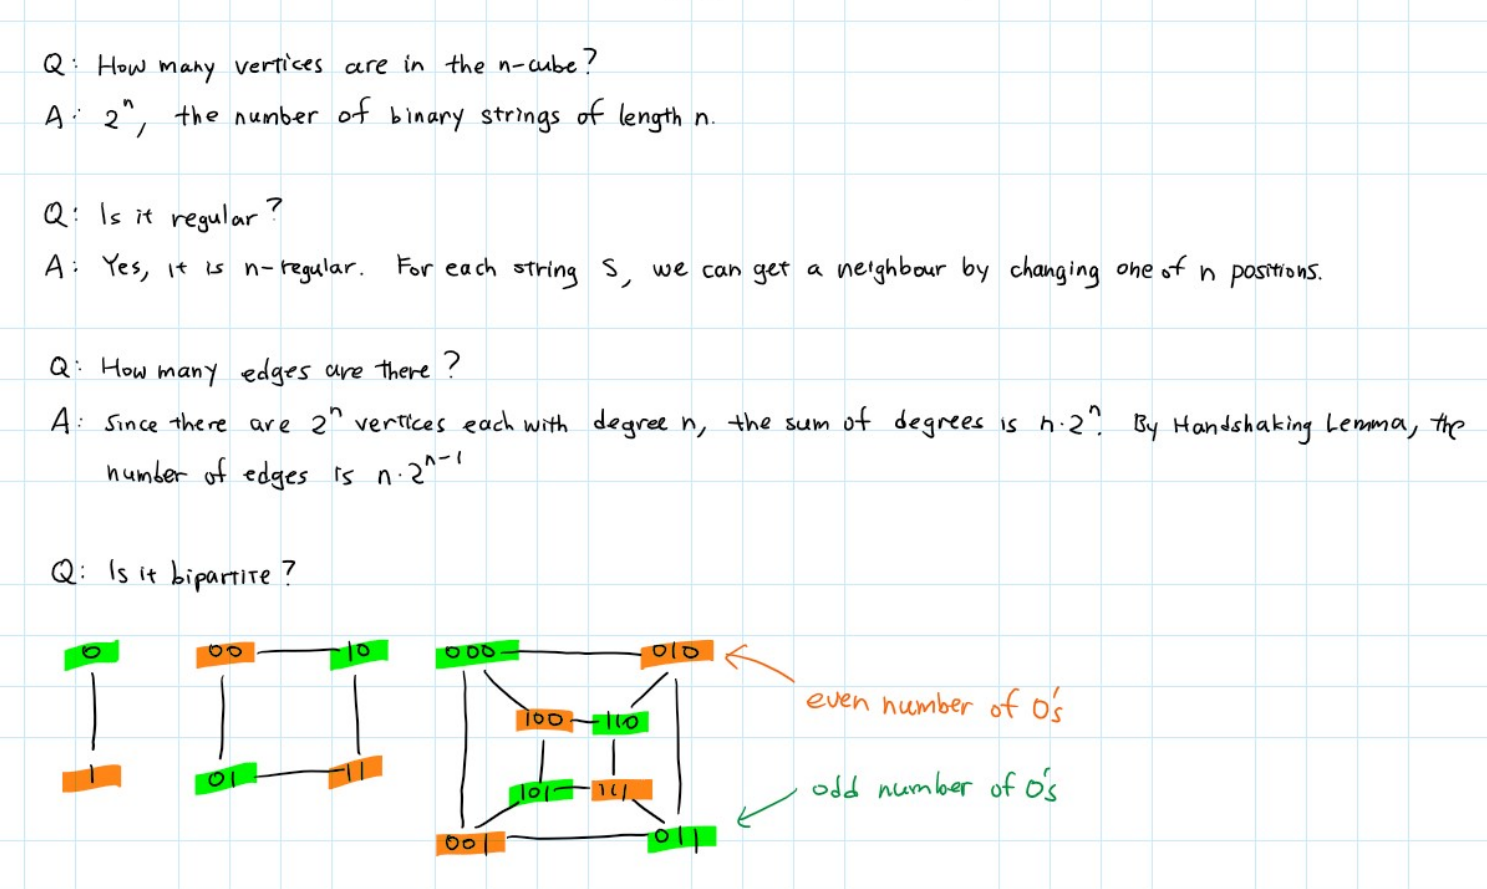 Q: How many vertices are in the n-cube?
A: 2ⁿ, the number of binary strings of length n.
Q: Is it regular?
A: Yes, it is n-regular. For each string S, we can get a neighbour by changing one of n positions.
Q: How many edges are there?
A: Since there are 2ⁿ vertices each with degree n, the sum of degrees is n·2ⁿ. By Handshaking Lemma, the
number of edges is n·2ⁿ⁻¹
Q: Is it bipartite?
0 00 10 000 010
even number of 0's
100 110
1 01 11 101 111
odd number of 0's
001 011